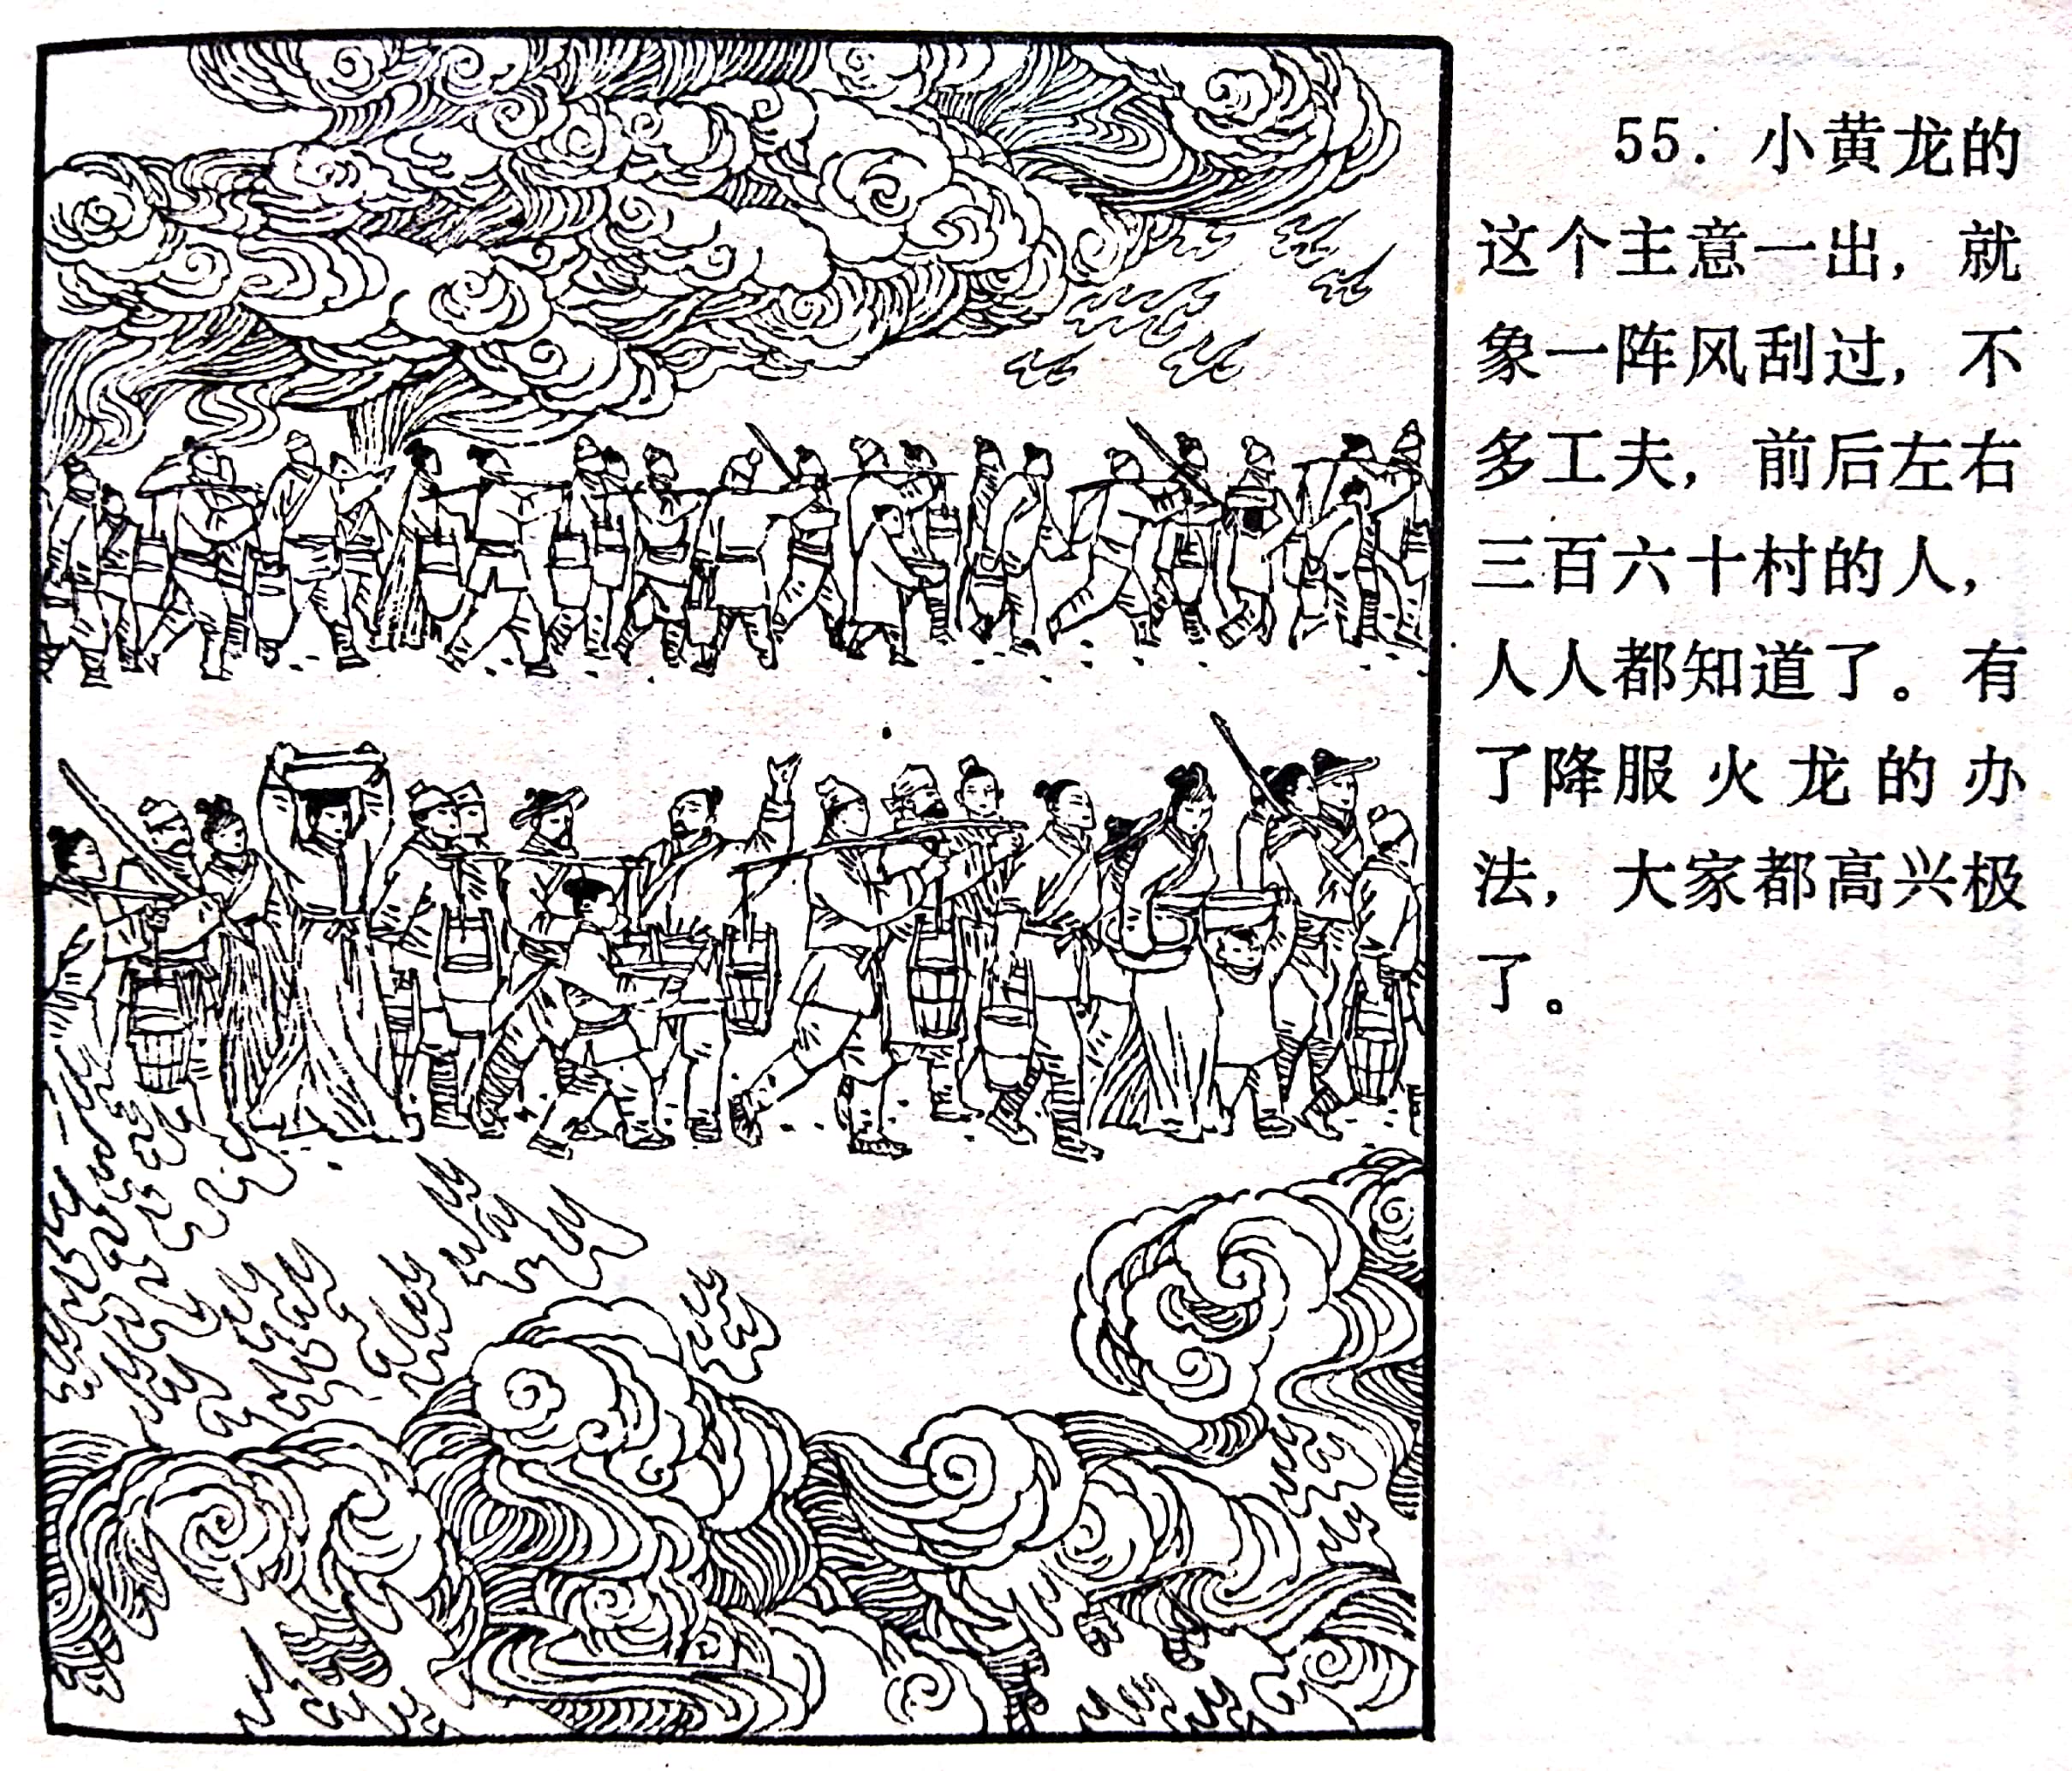 55. 小黄龙的
这个主意一出，就
象一阵风刮过，不
多工夫，前后左右
三百六十村的人，
人人都知道了。有
了降服火龙的办
法，大家都高兴极
了。